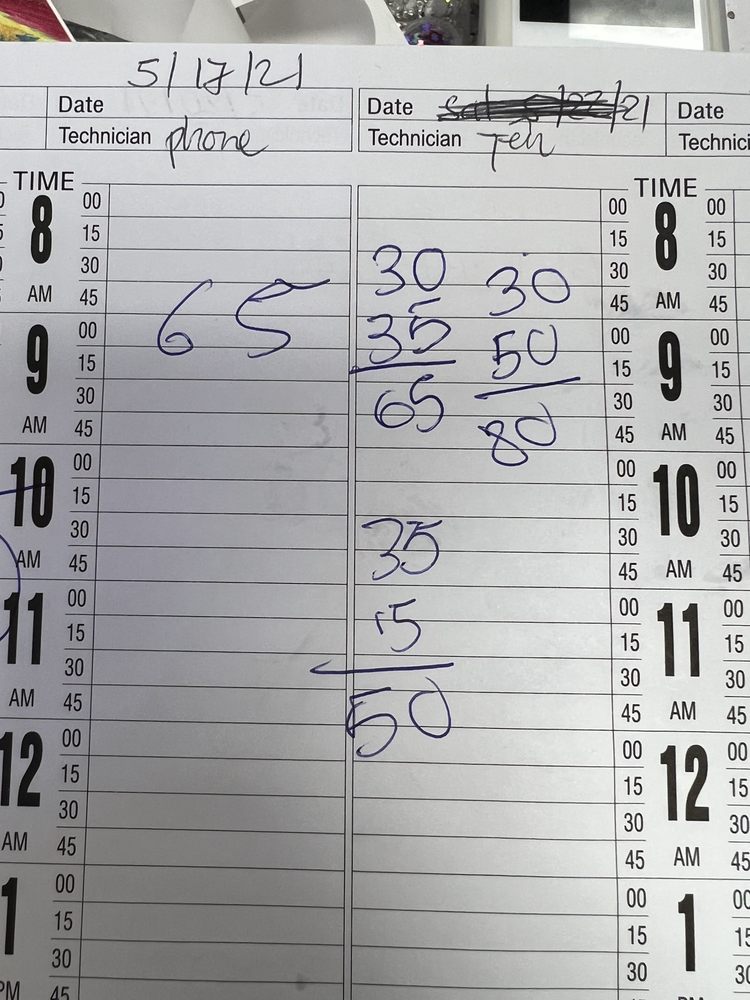 5/17/21
Date
Technician phone
Date /21
Technician
Date
TIME
8
AM
00
15
30
45
9
AM
00
15
30
45
10
AM
00
15
30
45
11
AM
00
15
30
45
12
AM
00
15
30
45
1
00
15
30
45
65
30
35
65
30
50
80
35
15
50
00
15
30
45
00
15
30
45
00
15
30
45
00
15
30
45
00
15
30
45
00
15
30
TIME
8
AM
9
AM
10
AM
11
AM
12
AM
1
00
15
30
45
00
15
30
45
00
15
30
45
00
15
30
45
00
15
30
45